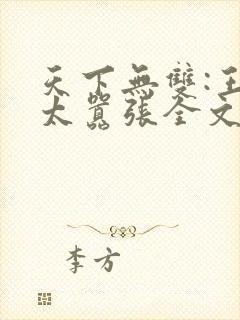 天下無雙:王
太囂張全文
李方